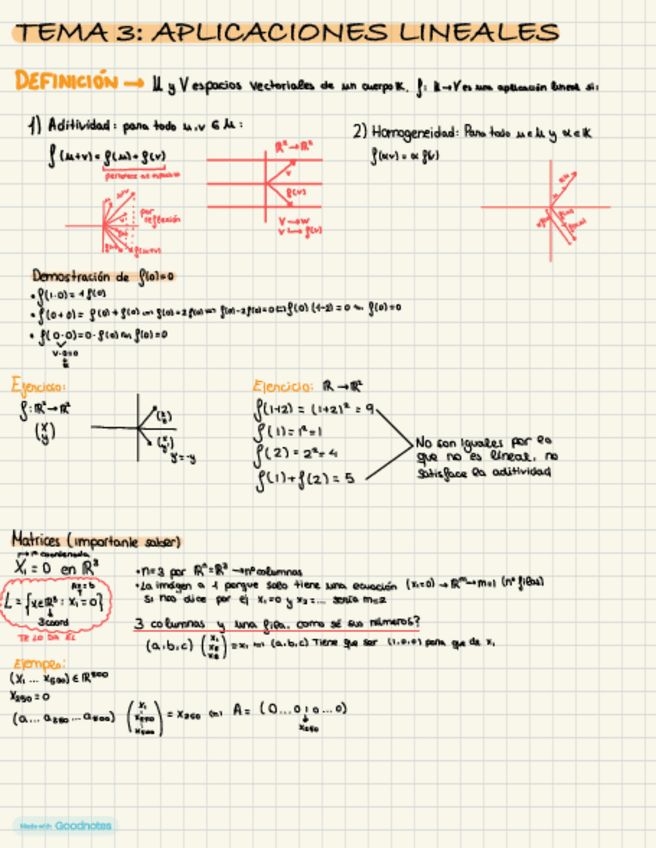 TEMA 3: APLICACIONES LINEALES
DEFINICIÓN → U y V espacios vectoriales de un cuerpo K. f: U→V es una aplicación lineal si:
1) Aditividad: para todo u,v ∈ U:
f(u+v) = f(u) + f(v)
2) Homogeneidad: Para todo u∈U y α∈K
f(αv) = α f(v)
R² → R²
f(v)
V → W
V ↦ f(v)
por reflexión
Demostración de f(0)=0
• f(0+0) = f(0) + f(0) f(0) = 2f(0) f(0)-2f(0)=0 f(0) (1-2) = 0 f(0)=0
• f(0·0) = 0·f(0) f(0)=0
Ejercicio:
f: R² → R²
(x y)
y=-y
Ejercicio: R → R²
f(1+2) = (1+2)² = 9
f(1) = 1² = 1
f(2) = 2² = 4
f(1) + f(2) = 5
No son iguales por lo
que no es lineal, no
satisface la aditividad
Matrices (importante saber)
X₁ = 0 en R³
L = {x∈R³ : x₁ = 0}
Ax=b
3 coord
TE LO DA EL
• n=3 por Rⁿ=R³ → nº columnas
• La imagen a 1 porque solo tiene una ecuación (x₁=0) → Rᵐ → m=1 (nº filas)
Si nos dice por ej x₁=0 y x₂=... sería m=2
3 columnas y una fila, como sé sus números?
(a,b,c) (x₁ x₂ x₃) = x₁ (a,b,c) Tiene que ser (1,0,0) para que de x₁
Ejemplo:
(x₁ ... x₅₀₀) ∈ R⁵⁰⁰
x₂₅₀ = 0
(a... a₂₅₀ ... a₅₀₀) (x₁ x₂₅₀ x₅₀₀) = x₂₅₀ A = (0...0 1 0 ...0)
x₂₅₀
Made with Goodnotes